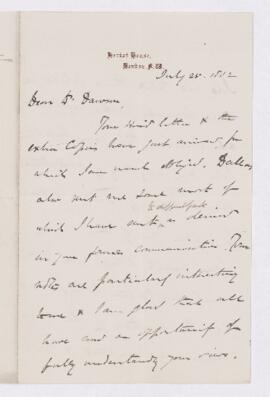 Heriot House,
London, N.W.
July 25. 1882
Dear Dr Dawson
Your kind letter & the
extra Copies have just arrived, for
which I am much obliged. Dallas
also sent me some most of
which I have sent, as desired
in your former communication. Your
notes are particularly interesting
to me & I am glad that all
have had an opportunity of
fully understanding your views.